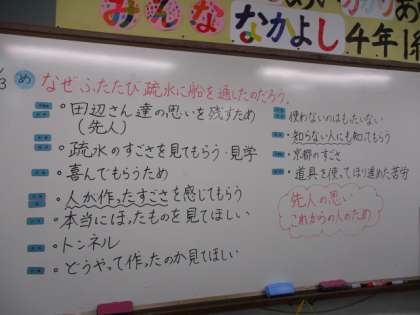 みんな なかよし 4年1組
/3
め なぜ ふたたび 疏水に船を通したのだろう。
・田辺さん達の思いを残すため
(先人)
・疏水のすごさを見てもらう・見学
・喜んでもらうため
・人が作ったすごさを感じてもらう
・本当にほったものを見てほしい
・トンネル
・どうやって作ったのか見てほしい
使わないのはもったいない
・知らない人にも知ってもらう
・京都のすごさ
・道具を使ってほり進めた苦労
先人の思い
これからの人のため